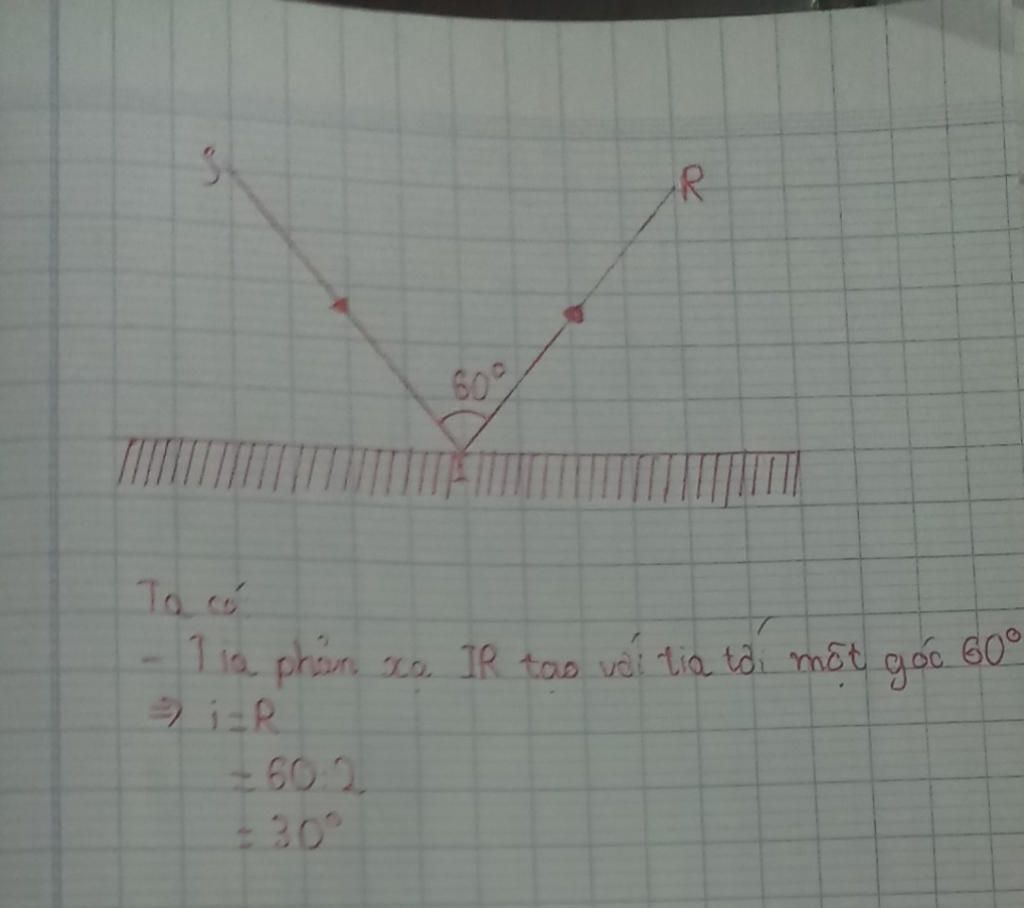 S
R
60°
I
Ta có
- Tia phản xạ IR tạo với tia tới một góc 60°
⇒ i=R
= 60:2
= 30°